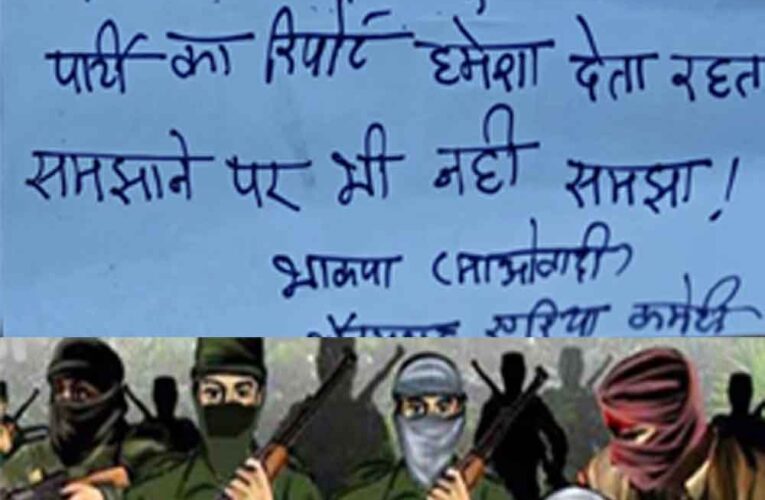 पार्टी का रिपोर्ट हमेशा देता रहत
समझाने पर भी नही समझा!
भाकपा (माओवादी)
एरिया कमेटी